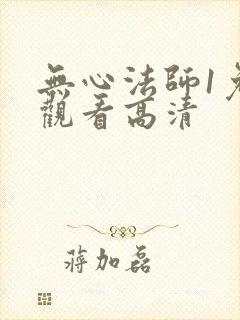 無心法師1
觀看高清
蔣加磊